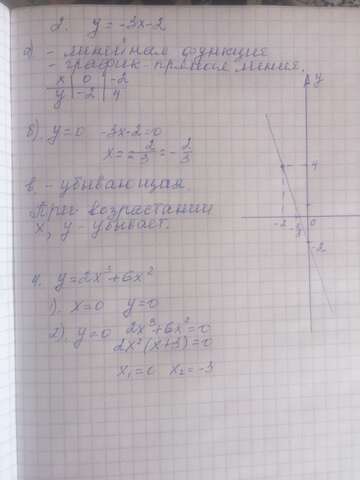 2. y = -3x-2
а) - линейная функция
- график - прямая линия.
x | 0 | -2
y | -2 | 4
б) y=0 -3x-2=0
x = 2/-3 = -2/3
в. - убывающая.
При возрастании
x, y - убывает.
4. y = 2x³+6x²
1). x=0 y=0
2). y=0 2x³+6x²=0
2x²(x+3)=0
x₁=0 x₂=-3
y
4
-2
0
-2